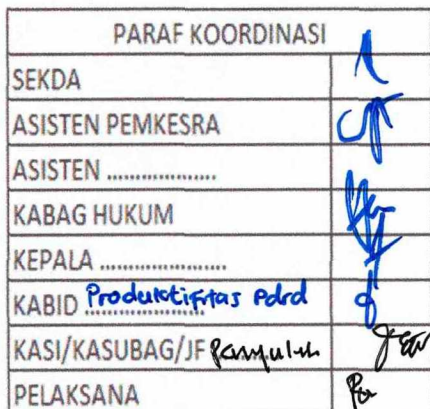 PARAF KOORDINASI
SEKDA
ASISTEN PEMKESRA
ASISTEN ...................
KABAG HUKUM
KEPALA ......................
KABID Produktifitas Pdrd
KASI/KASUBAG/JF Penyuluh
PELAKSANA